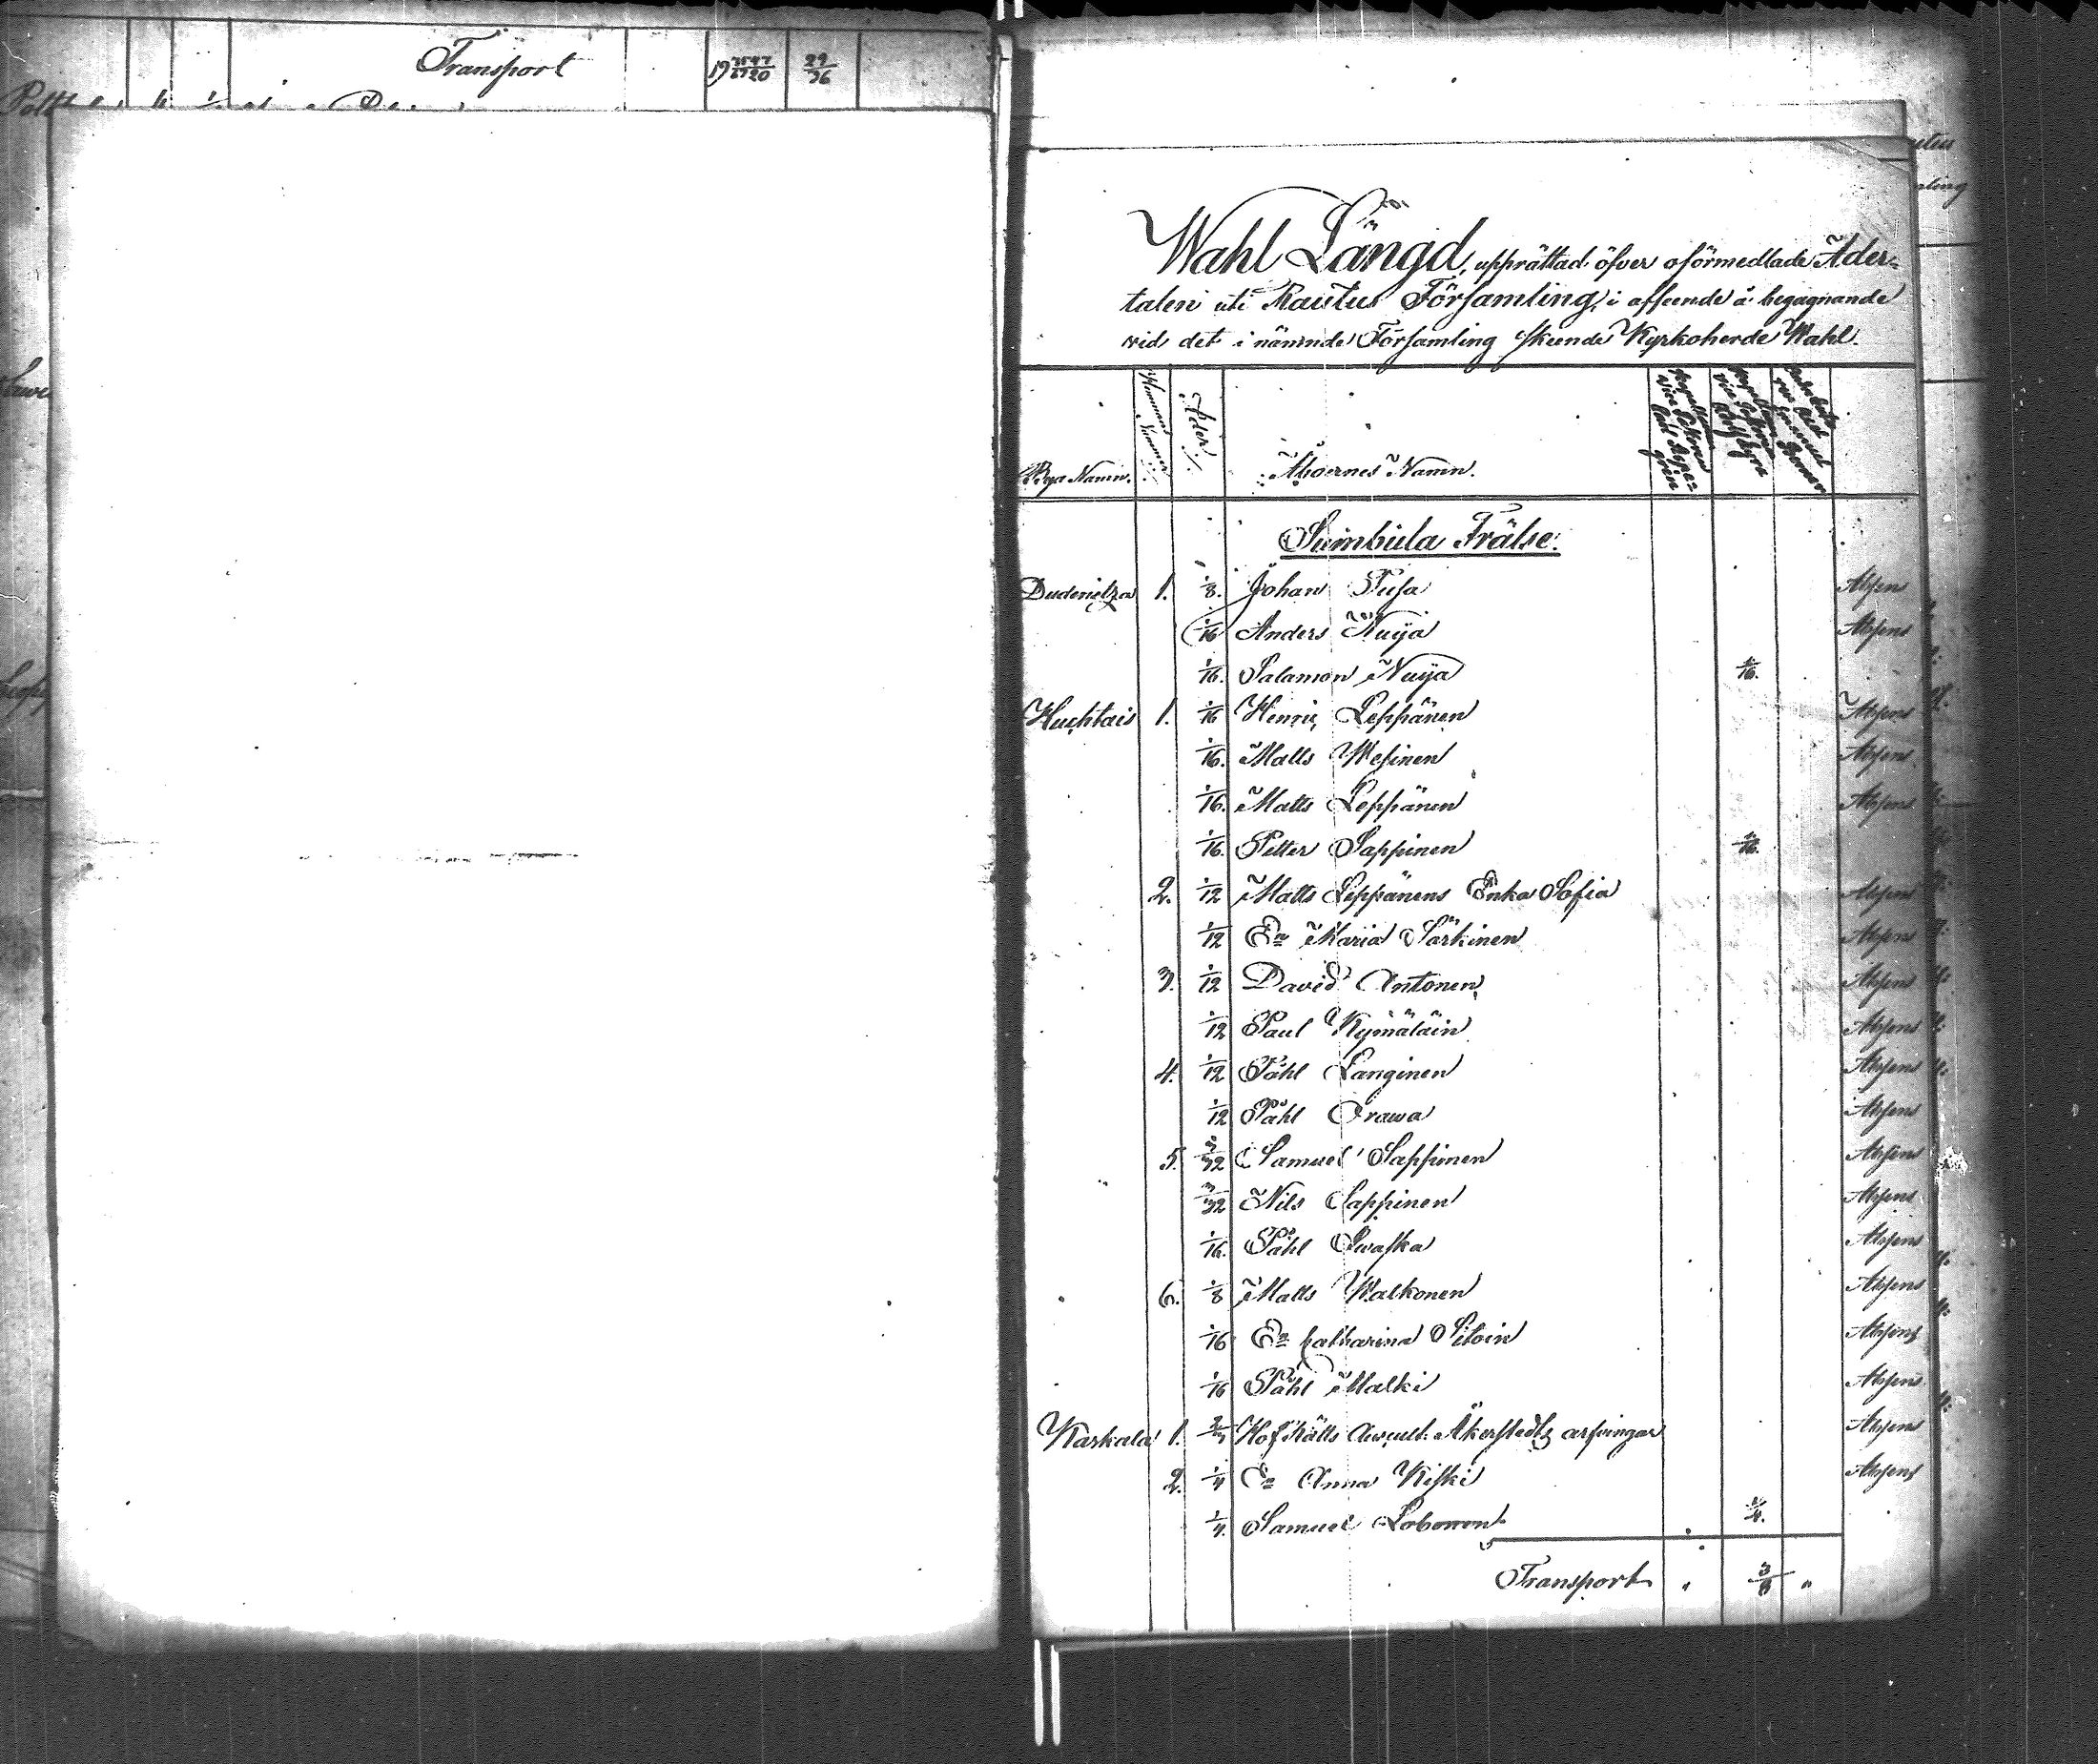 Transport 19 29/36
Wahl Längd, upprättad öfver oförmedlade Åder-
talen uti Rautus Församling, i afseende å begagnande
vid det i nämnde Församling skeende Kyrkoherde Wahl.
Bya Namn. Hemmans Nummer Åder Åboernes Namn.
Sumbula Frälse.
1. 1/8. Johan Tusa
1/16 Anders Nuija Absens
1/16. Salamon Nuija 1/16.
Huchtais 1. 1/16 Henric Leppänen Absens
1/16. Matts Wesinen Absens
1/16. Matts Leppänen Absens
1/16. Petter Sappinen 1/16.
2. 1/12 Matts Leppänens Enka Sofia Absens
1/12 En Maria Särkinen Absens
3. 1/12 David Antonen Absens
1/12 Paul Kymäläin Absens
4. 1/12 Påhl Langinen Absens
1/12 Påhl Orawa Absens
5. 3/32 Samuel Sappinen Absens
3/32 Nils Sappinen Absens
1/16. Påhl Absens
6. 1/8 Matts Walkonen Absens
1/16 En Catharina Absens
1/16 Påhl Malki Absens
Karkala 1. Hof Rätts Auscult. Åkerstedts arfvingar Absens
2. 1/4 En Anna Kiski Absens
1/4. Samuel 1/4.
Transport " 3/8 "